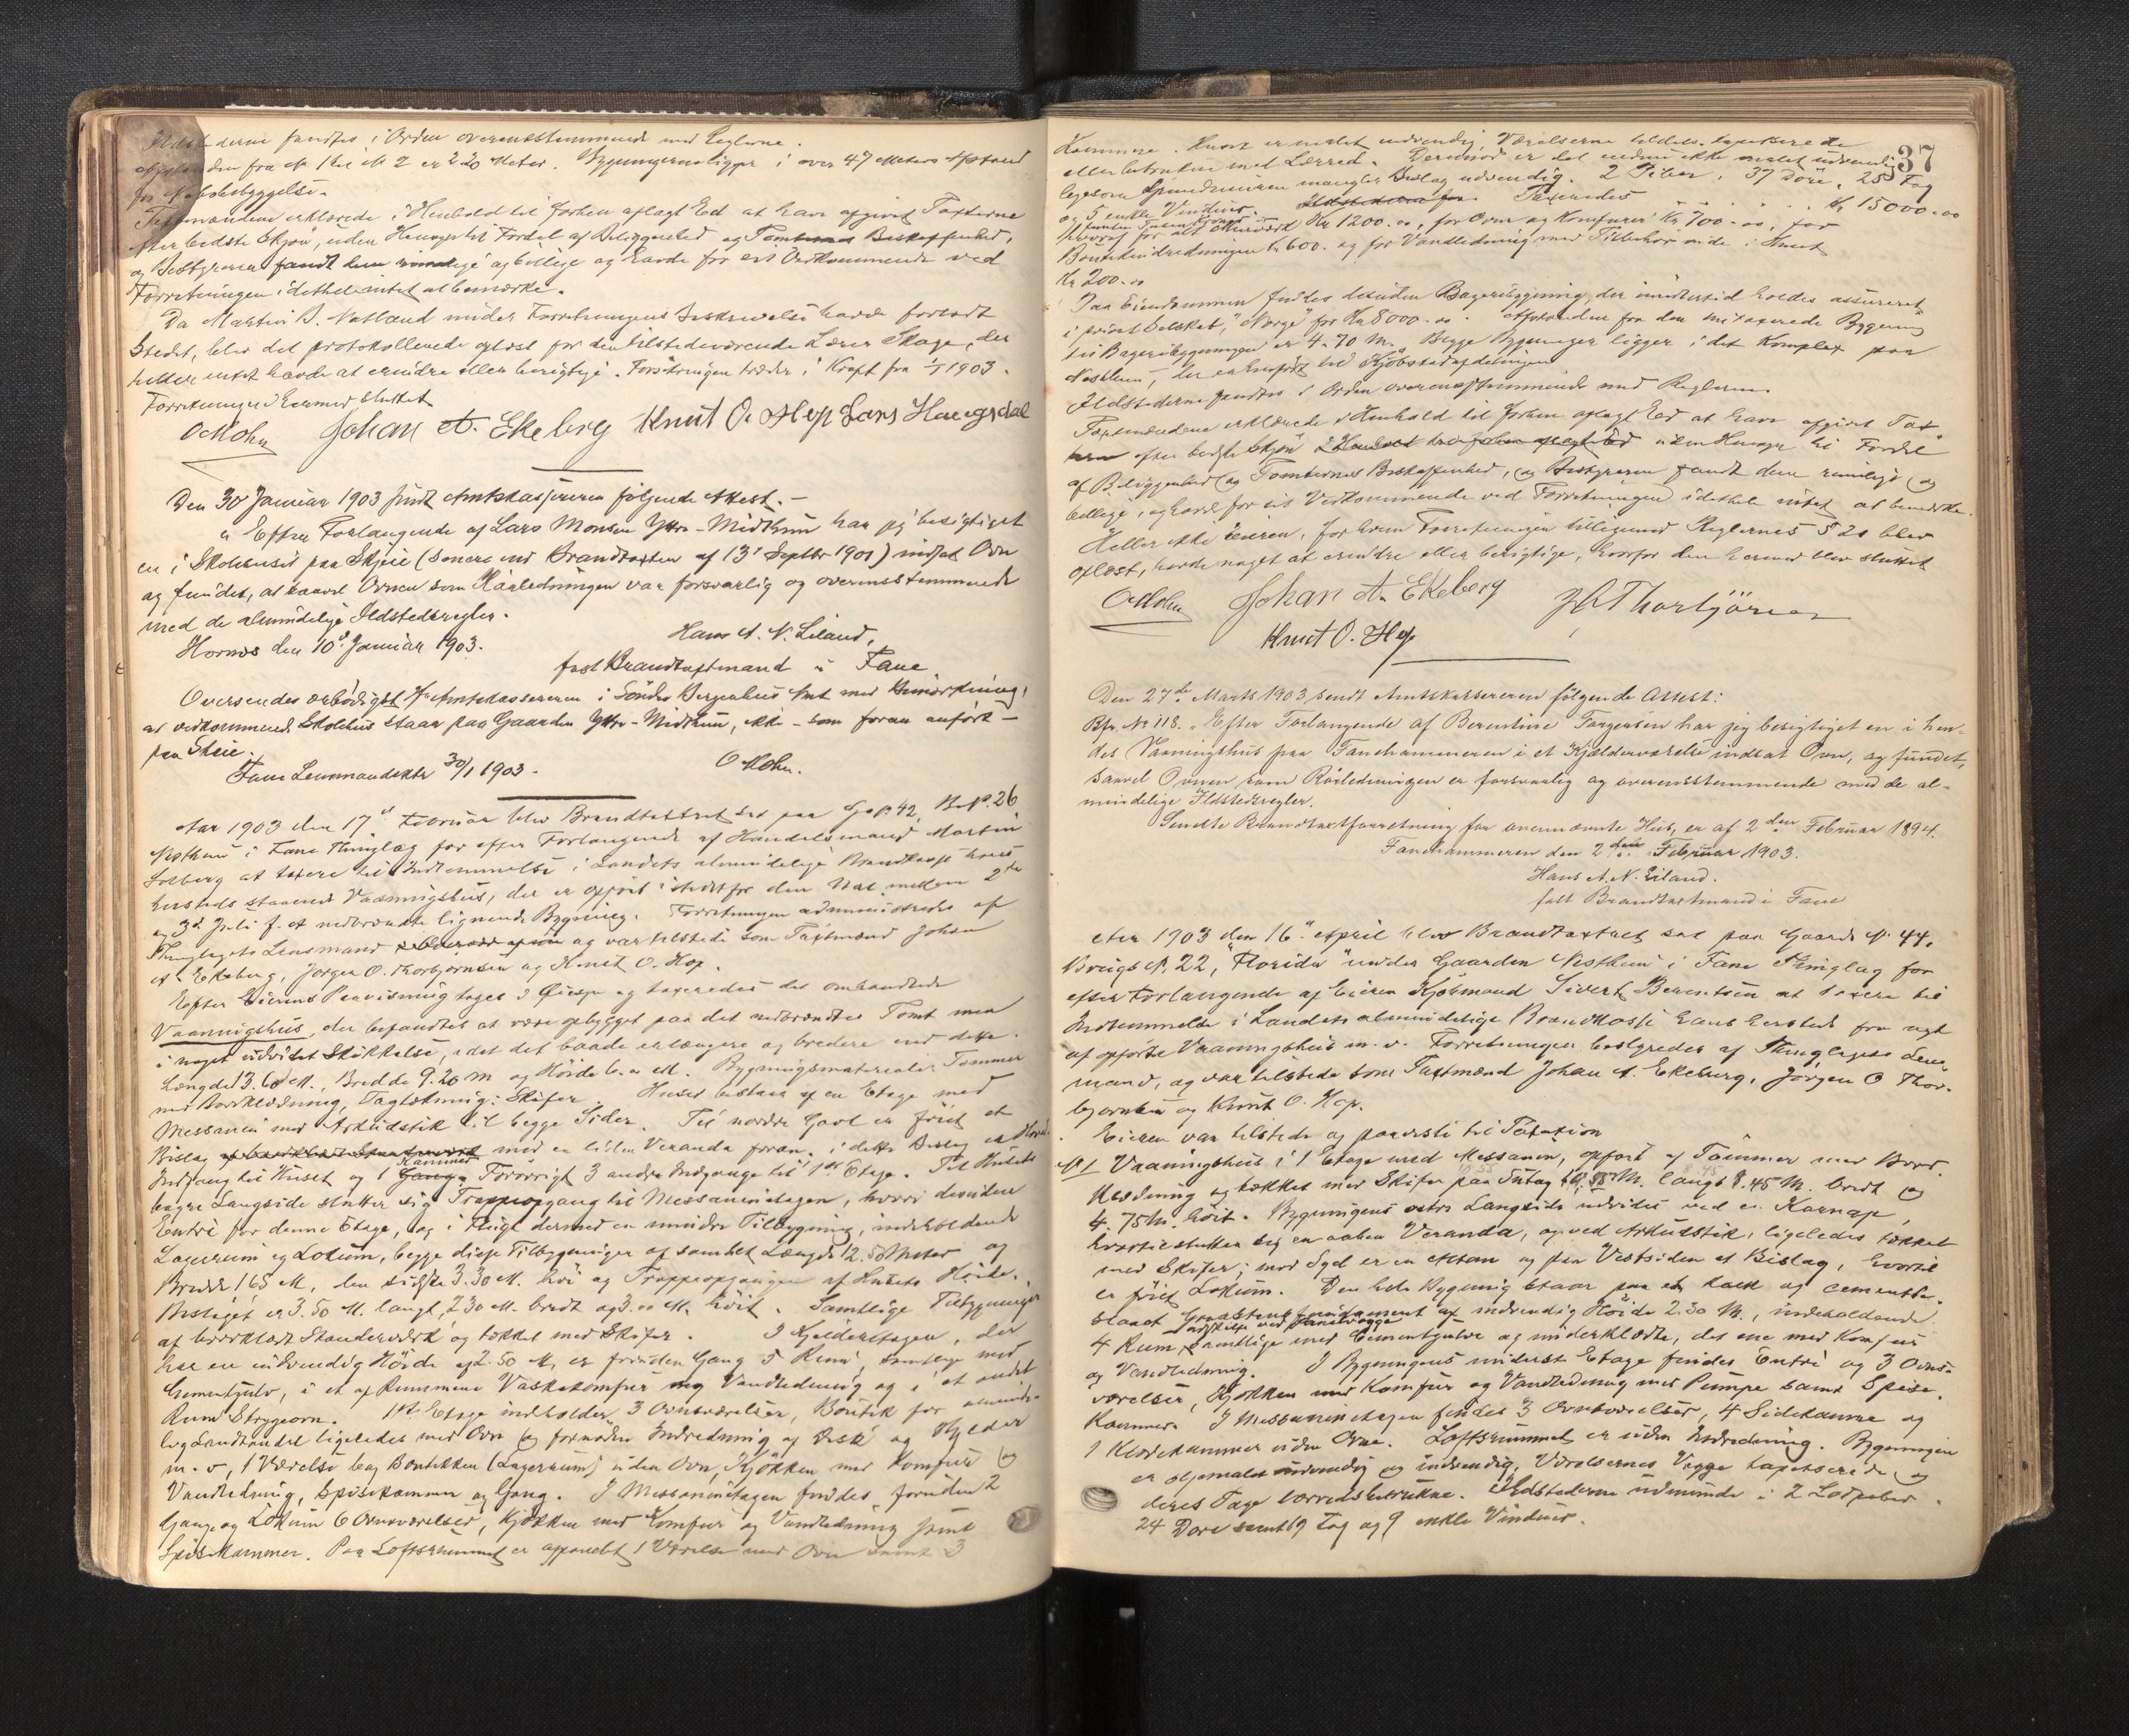 Ildstederne fandtes i Orden overensstemmende med Reglerne.
Afstanden fra No 1 til No 2 er 2.20 Meter. Bygningerne ligger i over 47 Meters Afstand
fra Nabobebyggelse.
Taxtmændene erklærede i Henhold til forhen aflagt Ed at have afgivet Taxterne
efter bedste Skjøn, uden Hensyn til Fordel af Beliggenhed og Tomternes Beskaffenhed,
og Bestyreren fandt dem rimelige og billige og havde for sit Vedkommende ved
Forretningen idethele intet at bemærke.
Da Martin J. Natland under Forretningens Beskrivelse havde forladt
Stedet, blev det protokollerede oplæst for den tilstedeværende Lærer Skage, der
heller intet havde at erindre eller berigtige. Forsikringen træder i Kraft fra 1/1 1903.
Forretningen hermed sluttet
O Mohn Johan A. Ekeberg Knut O. Hop Lars Haugsdal
Den 30 Januar 1903 sendt Amtskassereren følgende Attest. –
"Efter Forlangende af Lars Monsen Ytre-Midthun har jeg besigtiget
en i Skolehuset paa Skjeie (senere end Brandtaxten af 13' Septbr 1901) indsat Ovn
og fundet, at saavel Ovnen som Rørledningen var forsvarlig og overensstemmende
med de almindelige Ildstedsregler.
Hornes den 10' Januar 1903.
Hans A. N. Liland,
fast Brandtaxtmand i Fane
Oversendes ærbødigst Hr Amtskassereren i Søndre Bergenhus Amt med Bemærkning,
at vedkommende Skolehus staar paa Gaarden Ytre-Midthun, ikke – som foran anført –
paa Skeie.
Fane Lensmandsktr 30/1 1903.
O Mohn.
Aar 1903 den 17' Februar blev Brandtaxtret sat paa G. No. 42, B. No. 26
Nesthun i Fane Thinglag for efter Forlangende af Handelsmand Martin
Solberg at taxere til Indtemmelse i Landets almindelige Brandkasse hans
hersteds staaende Vaaningshus, der er opført istedetfor den Nat mellem 2den
og 3d Juli f. A. nedbrændte lignende Bygning. Forretningen administredes af
Thinglagets Lensmand og var tilstede som Taxtmænd Johan
A. Ekeberg, Jørgen O. Thorbjørnsen og Knut O. Hop.
Efter Eierens Paavisning toges i Øiesyn og taxeredes det omhandlede
Vaaningshus, der befandtes at være opbygget paa det nedbrændtes Tomt men
i noget udvidet Skikkelse, idet det baade er længere og bredere end dette.
Længde 13.60 M., Bredde 9.20 M og Høide 6.00 M. Bygningsmateriale: Tømmer
med Bordklædning, Tagtækning: Skifer. Huset bestaar af en Etage med
Messanin med Arkudstik til begge Sider. Til nordre Gavl er føiet et
Bislag med en liden Veranda foran, i dette Bislag er Hoved-
Indgang til Huset og 1 Kammer Forøvrigt 3 andre Indgange til 1ste Etage. Til Husets
bagre Langside slutter sig Trappeopgang til Messaninetagen, hvori desuden
Entré for denne Etage, og i Flugt dermed en mindre Tilbygning, indeholdende
Lagerrum og Lokum, begge disse Tilbygninger af samlet Længde 12.50 Meter og
Bredde 1.65 M, den sidste 3.30 M. høi og Trappeopgangen af Husets Høide.
Bislaget er 3.50 M. langt, 2.30 M. bredt og 3.00 M. høit. Samtlige Tilbygninger
af bordklædt Standerværk og tækket med Skifer. I Kjelderetagen, der
har en indvendig Høide af 2.50 M, er foruden Gang 5 Rum, samtlige med
Cementgulv, i et af Rummene Vaskekomfur og Vandledning og i et andet
Rum Strygeovn. 1ste Etage indholder 3 Ovnsværelser, Boutik for alminde-
lig Landhandel ligeledes med Ovn og fornøden Indredning af Disk og Hylder
m. v., 1 Værelse bag Boutikken (Lagerrum) uden Ovn, Kjøkken med Komfur og
Vandledning, Spisekammer og Gang. I Messaninetagen findes foruden 2
Gange og Lokum 6 Ovnsværelser, Kjøkken med Komfur og Vandledning samt
Spiskammer. Paa Loftsrummet er afpanelet 1 Værelse med Ovn samt 3
37
Kammere. Huset er malet indvendig, Værelserne tildels tapetserede
eller betrukne med Lærred. Derimod er det endnu ikke malet udvendig
ligesom Grundmuren mangler Beslag udvendig. 2 Piber, 37 Døre, 25 Fag
og 5 enkle Vinduer. Taxeredes Kr 15000.00
hvoraf for alt Murværk Kr 1200.00, for Ovn og Komfurer Kr 700.00, for
Boutikindredningen Kr 600. og for Vandledning med Tilbehør inde i Huset
Kr 200.00
Paa Eiendommen findes desuden Bageribygning, der imidlertid holdes assureret
i privat Selskab, "Norge" for Kr 8000.00. Afstanden fra den nu taxerede Bygning
til Bageribygningen er 4.70 M. Begge Bygninger ligger i det Komplex paa
Nesthun, der er henført til Kjøbstadafdelingen
Ildstederne fandtes i Orden overensstemmende med Reglerne.
Taxtmændene erklærede i Henhold til forhen aflagt Ed at have afgivet Tax-
ten efter bedste Skjøn uden Hensyn til Fordel
af Beliggenhed og Tomternes Beskaffenhed, og Bestyreren fandt dem rimelige og
billige, og havde for sit Vedkommende ved Forretningen idethele intet at bemærke.
Heller ikke Eieren, for hvem Forretningen tilligemed Reglernes § 20 blev
oplæst, havde noget at erindre eller berigtige, hvorfor den hermed blev sluttet
O Mohn Johan A. Ekeberg J O Thorbjørnsen
Knut O. Hop
Den 27de Marts 1903 sendt Amtskassereren følgende Attest:
Bfr. No 118. "Efter Forlangende af Berentine Torgersen har jeg besigtiget en i hen-
des Vaaningshus paa Fanehammeren i et Kjælderværelse indsat Ovn, og fundet,
saavel Ovnen som Rørledningen er forsvarlig og overensstemmende med de al-
mindelige Ildstedsregler.
Sidste Brandtaxtforretning for ovennævnte Hus, er af 2den Februar 1894.
Fanehammeren den 2den Februar 1903.
Hans A. N. Liland.
fast Brandtaxtmand i Fane
Aar 1903 den 16' April blev Brandtaxtret sat paa Gaards No 44,
Brugs No. 22, "Florida" under Gaarden Nesthun i Fane Thinglag for
efter Forlangende af Eieren Kjøbmand Sivert Berentsen at taxere til
Indtemmelse i Landets almindelige Brandkasse hans hersteds fra nyt
af opførte Vaaningshus m. v. Forretningen bestyredes af Thinglagets Lens-
mand, og var tilstede som Taxtmænd Johan A. Ekeberg, Jørgen O Thor-
bjørnsen og Knut O. Hop.
Eieren var tilstede og paaviste til Taxation
No 1 Vaaningshus i 1 Etage med Messanin, opført af Tømmer med Bord-
klædning og tækket med Skifer paa Sutag 10.55 M. langt 8.45 M. bredt og
4.75 M. høit. Bygningens østre Langside udvides ved en Karnap,
hvortil slutter sig en aaben Veranda, og ved Arkudstik, ligeledes tækket
med Skifer; mod Syd er en Altan og paa Vestsiden et Bislag, hvortil
er føiet Lokum. Den hele Bygning staar paa et kalk og cement-
slaaet Graastens fundament af indvendig Høide 2.30 M., indeholdende
4 Rum, adskilte ved Panelvægge samtlige med Cementgulve og underklædte, det ene med Komfur
og Vandledning. I Bygningens underste Etage findes Entré og 3 Ovns-
værelser, Kjøkken med Komfur og Vandledning med Pumpe samt Spise-
kammer. I Messaninetagen findes 3 Ovnsværelser, 4 Sidekamre og
1 Klædekammer uden Ovne. Loftsrummet er uden Indredning. Bygningen
er oljemalet udvendig og indvendig, Værelsernes Vægge tapetserede og
deres Tage lærredsbetrukne. Ildstederne udmunde i 2 Lodpiber.
24 Døre samt 19 Fag og 9 enkle Vinduer.